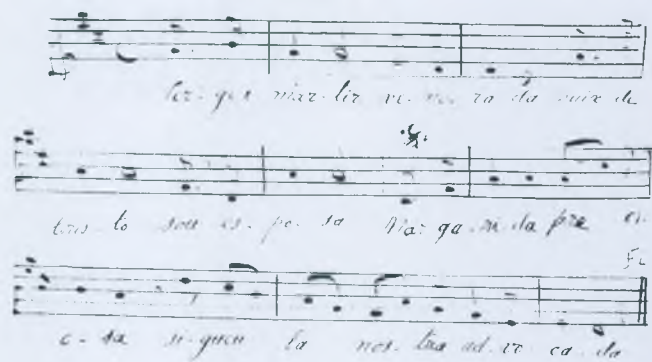 Ver-ges mar-tir ve-ne-ra-da puix de
Cris-to sou es-po-sa Mar-ga-ri-da pre ci-
Fi
o-sa si-gueu la nos-tra ad-vo-ca-da